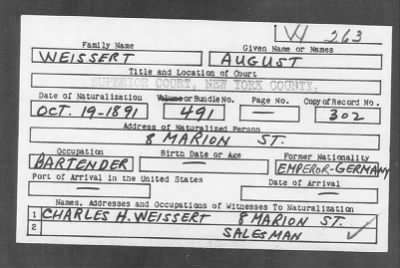 W 263
Family Name Given Name or Names
WEISSERT AUGUST
Title and Location of Court
SUPERIOR COURT, NEW YORK COUNTY.
Date of Naturalization Volume or Bundle No. Page No. Copy of Record No.
OCT. 19-1891 491 — 302
Address of Naturalized Person
8 MARION ST.
Occupation Birth Date or Age Former Nationality
BARTENDER — EMPEROR-GERMANY
Port of Arrival in the United States Date of Arrival
— —
Names, Addresses and Occupations of Witnesses To Naturalization
1 CHARLES H. WEISSERT 8 MARION ST.
2 SALESMAN